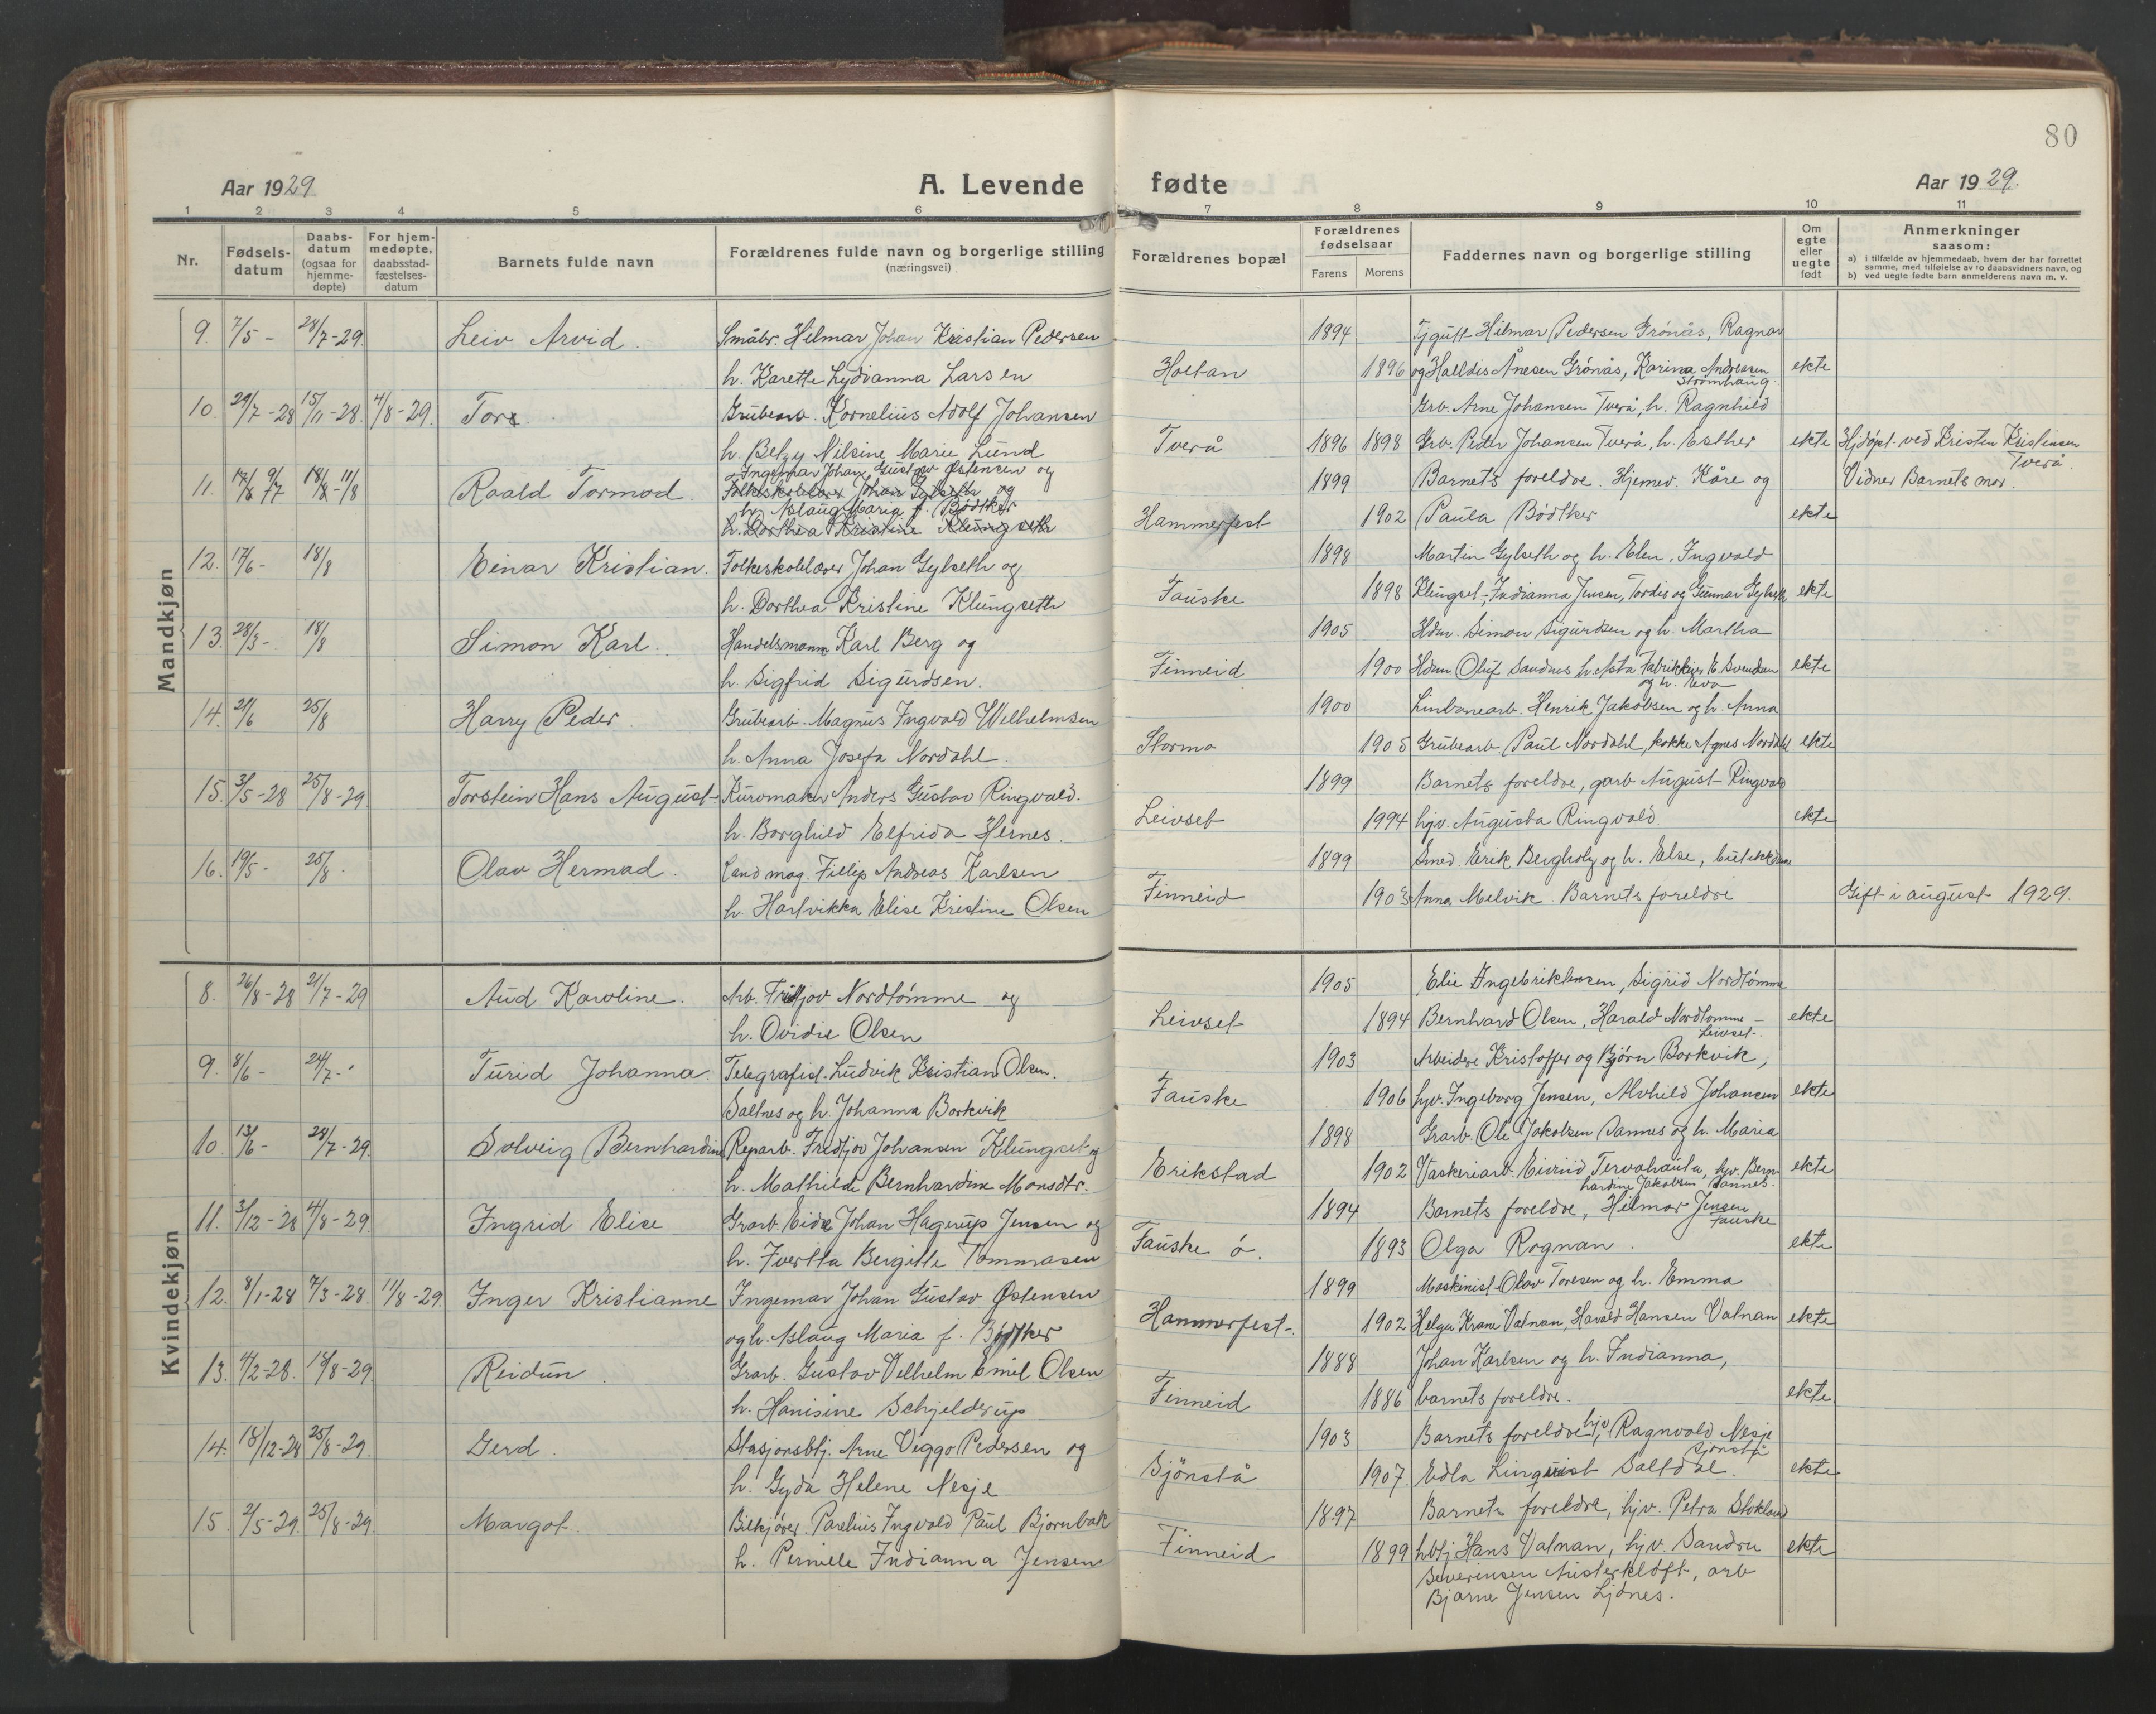 80
Aar 1929 A. Levende fødte Aar 1929.
1 2 3 4 5 6 7 8 9 10 11
Nr. Fødsels-datum Daabs-datum (ogsaa for hjemme-døpte) For hjem-medøpte, daabsstad-fæstelses-datum Barnets fulde navn Forældrenes fulde navn og borgerlige stilling (næringsvei) Forældrenes bopæl Forældrenes fødselsaar Farens Morens Faddernes navn og borgerlige stilling Om egte eller uegte født Anmerkninger saasom: a) i tilfælde av hjemmedaab, hvem der har forrettet samme, med tilføielse av to daabsvidners navn, og b) ved uegte fødte barn anmelderens navn m. v.
Mandkjøn
9. 7/5 - 28/7-29. Leiv Arvid. Småbr. Hilmar Johan Kristian Pedersen 1894 Tjgutt Hilmar Pedersen Grønås, Ragnar
h. Karette Lydianna Larsen Holtan 1896 og Halldis Ånesen Grønås, Karina Andreasen Strømhaug ekte
10. 29/7-28 15/11-28. 4/8-29. Tore. Grubearb. Kornelius Adolf Johansen Grb. Arne Johansen Tverå, h. Ragnhild
h. Betzy Nilsine Marie Lund Tverå 1896 1898 Grb. Peder Johansen Tverå, h. Esther ekte Hjdøpt ved Kristen Kristensen Tverå.
11. 17/6 9/7 18/8 - 11/8 Roald Tormod. Ingemar Johan Gustav Østensen og 1899 Barnets foreldre. Hjemev. Kåre og Vidner Barnets mor.
Folkeskolelærer Johan Gylseth og
h. Aslaug Maria f. Bødtker Hammerfest 1902 Paula Bødtker ekte
h. Dorthea Kristine Klungseth
12. 17/6 - 18/8 Einar Kristian. Folkeskolelærer Johan Gylseth og 1898 Martin Gylseth og h. Elen, Ingvald
h. Dorthea Kristine Klungseth Fauske 1898 Klungset, Indianna Jensen, Tordis og Gunnar Gylseth ekte
13. 28/3 - 18/8 Simon Karl. Handelsmann Karl Berg og 1905 Hdm. Simon Sigurdsen og h. Martha
h. Sigfrid Sigurdsen. Finneid 1900 Hdm Oluf Sandnes h. Asta Fabrikkeier E. Svendsen og h. Eva ekte
14. 21/6 25/8 Harry Peder. Grubearb. Magnus Ingvald Wilhelmsen 1900 Linbanearb. Henrik Jakobsen og h. Anna
h. Anna Josefa Nordahl. Stormo 1905 Grubearb. Paul Nordahl, kokke Agnes Nordahl ekte
15. 3/5-28 25/8-29 Torstein Hans August Kurvmaker Anders Gustav Ringvold. 1899 Barnets foreldre, garb August Ringvold
h. Borghild Elfrida Hernes. Leivset 1994 hjv. Augusta Ringvold. ekte
16. 19/5 - 25/8. Olav Hermod. Cand mag. Fillip Andreas Karlsen 1899 Smed Erik Bergholy og h. Else, butikkdame
h. Hartvikka Elise Kristine Olsen Finneid 1903 Anna Melvik. Barnets foreldre Gift i august 1929.
Kvindekjøn
8. 26/8-28 21/7-29 Aud Karoline. Arb. Fridtjov Nordtømme og 1905 Elie Ingebriktsen, Sigrid Nordtømme
h. Ovidie Olsen Leivset 1894 Bernhard Olsen, Harald Nordtømme - Leivset. ekte
9. 8/6 - 24/7 - Turid Johanna. Telegrafist Ludvik Kristian Olsen. 1903 Arbeidere Kristoffer og Bjørn Borkvik,
Saltnes og h. Johanna Borkvik Fauske 1906 hjv. Ingeborg Jensen, Alvhild Johansen ekte
10. 13/6 - 24/7-29. Solveig Bernhardine Reparb. Fridtjov Johansen Klungset og 1898 Grarb. Ole Jakobsen Vannes og h. Maria
h. Mathilde Bernhardine Monsdtr. Erikstad 1902 Vaskeriarb. Eivind Tervahauta, hjv. Bern-hardine Jakobsen Vannes. ekte
11. 3/12-28 4/8-29. Ingrid Elise Grarb. Eidie Johan Hagerup Jensen og 1894 Barnets foreldre, Hilmar Jensen Fauske
h. Ivertta Bergitte Tommasen Fauske ø. 1893 Olga Rognan. ekte
12. 8/1-28 7/3-28. 11/8-29 Inger Kristianne Ingemar Johan Gustav Østensen 1899 Maskinist Olav Toresen og h. Emma
og h. Aslaug Maria f. Bødtker Hammerfest. 1902 Helga Krane Valnan, Harald Hansen Valnan ekte
13. 4/2-28. 18/8-29. Reidun. Grarb. Gustav Vilhelm Emil Olsen 1888 Johan Karlsen og h. Indianna,
h. Hanisine Schjelderup Finneid 1886 barnets foreldre. ekte
14. 18/12-28 25/8-29. Gerd. Stasjonsbtj. Arne Viggo Pedersen og 1903 Barnets foreldre, hjv Ragnvald Nesje Sjønstå
h. Gyda Helene Nesje Sjönstå 1907. Edla Linquist Saltdal. ekte
15. 2/5-29. 25/8-29. Margot. Bilkjører. Parelius Ingvald Paul Bjørnbak 1897 Barnets foreldre, hjv. Petra Stokland
h. Pernille Indianna Jensen Finneid 1899 hbtj Hans Valnan, hjv. Sandra ekte
Severinsen Austerkløft, arb
Bjarne Jensen Ljønes.